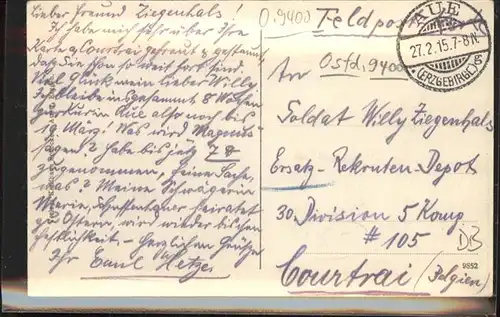 Lieber Freund Ziegenhals!
Ich habe mich sehr über Ihre
Karte a. Courtrai gefreut & gestaunt,
daß Sie schon so weit fort sind.
Viel Glück mein lieber Willy
Ich bleibe insgesamt 8 Wochen
zur in Aue also noch bis
19 März! Was wird "Magnus"
sagen? habe bis jetzt 7 ℔
zugenommen, feine Sache,
was? Meine Schwägerin
Marie, heiratet
zu Ostern, wird wieder bischen
Festlichkeit - Herzlichen Grüßen
Ihr Emil Hetzer
O.9400
Feldpost
AUE
27.2.15.7-8N.
(ERZGEBIRGE)
Ostd. 9400
An
Soldat Willy Ziegenhals
Ersatz-Rekruten-Depot
30. Division 5 Komp
# 105
DB
9852
Courtrai (Belgien)